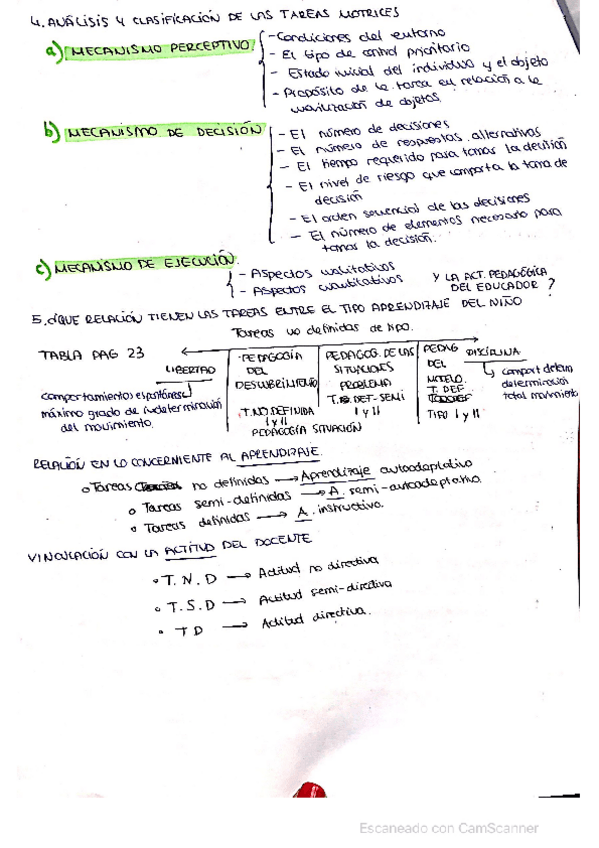 4. ANÁLISIS Y CLASIFICACIÓN DE LAS TAREAS MOTRICES
a) MECANISMO PERCEPTIVO
- Condiciones del entorno
- El tipo de control prioritario
- Estado inicial del individuo y el objeto
- Propósito de la tarea en relación a la
movilización de objetos.
b) MECANISMO DE DECISIÓN
- El número de decisiones
- El número de respuestas alternativas
- El tiempo requerido para tomar la decisión
- El nivel de riesgo que comporta la toma de
decisión
- El orden secuencial de las decisiones
- El número de elementos necesario para
tomar la decisión.
c) MECANISMO DE EJECUCIÓN.
- Aspectos cualitativos
- Aspectos cuantitativos
Y LA ACT. PEDAGÓGICA
DEL EDUCADOR?
5. ¿QUE RELACIÓN TIENEN LAS TAREAS ENTRE EL TIPO APRENDIZAJE DEL NIÑO
Tareas no definidas de tipo.
TABLA PAG 23
LIBERTAD
comportamientos espontáneos
máximo grado de indeterminación
del movimiento.
PEDAGOGÍA
DEL
DESCUBRIMIENTO
T. NO DEFINIDA
I y II
PEDAGOG. DE LAS
SITUACIONES
PROBLEMA
DEF-SEMI
I y II
PEDAGOGÍA SITUACIÓN
PEDAG
DEL
MODELO
T. DEF
TIPO I y II
DISCIPLINA
comport
determinación
total movimiento
RELACIÓN EN LO CONCERNIENTE AL APRENDIZAJE.
o Tareas no definidas → Aprendizaje autoadaptativo
o Tareas semi-definidas → A. semi-autoadaptativo.
o Tareas definidas → A. instructivo.
VINCULACIÓN CON LA ACTITUD DEL DOCENTE
o T. N. D → Actitud no directiva
o T. S. D → Actitud semi-directiva
o T D → Actitud directiva.
Escaneado con CamScanner